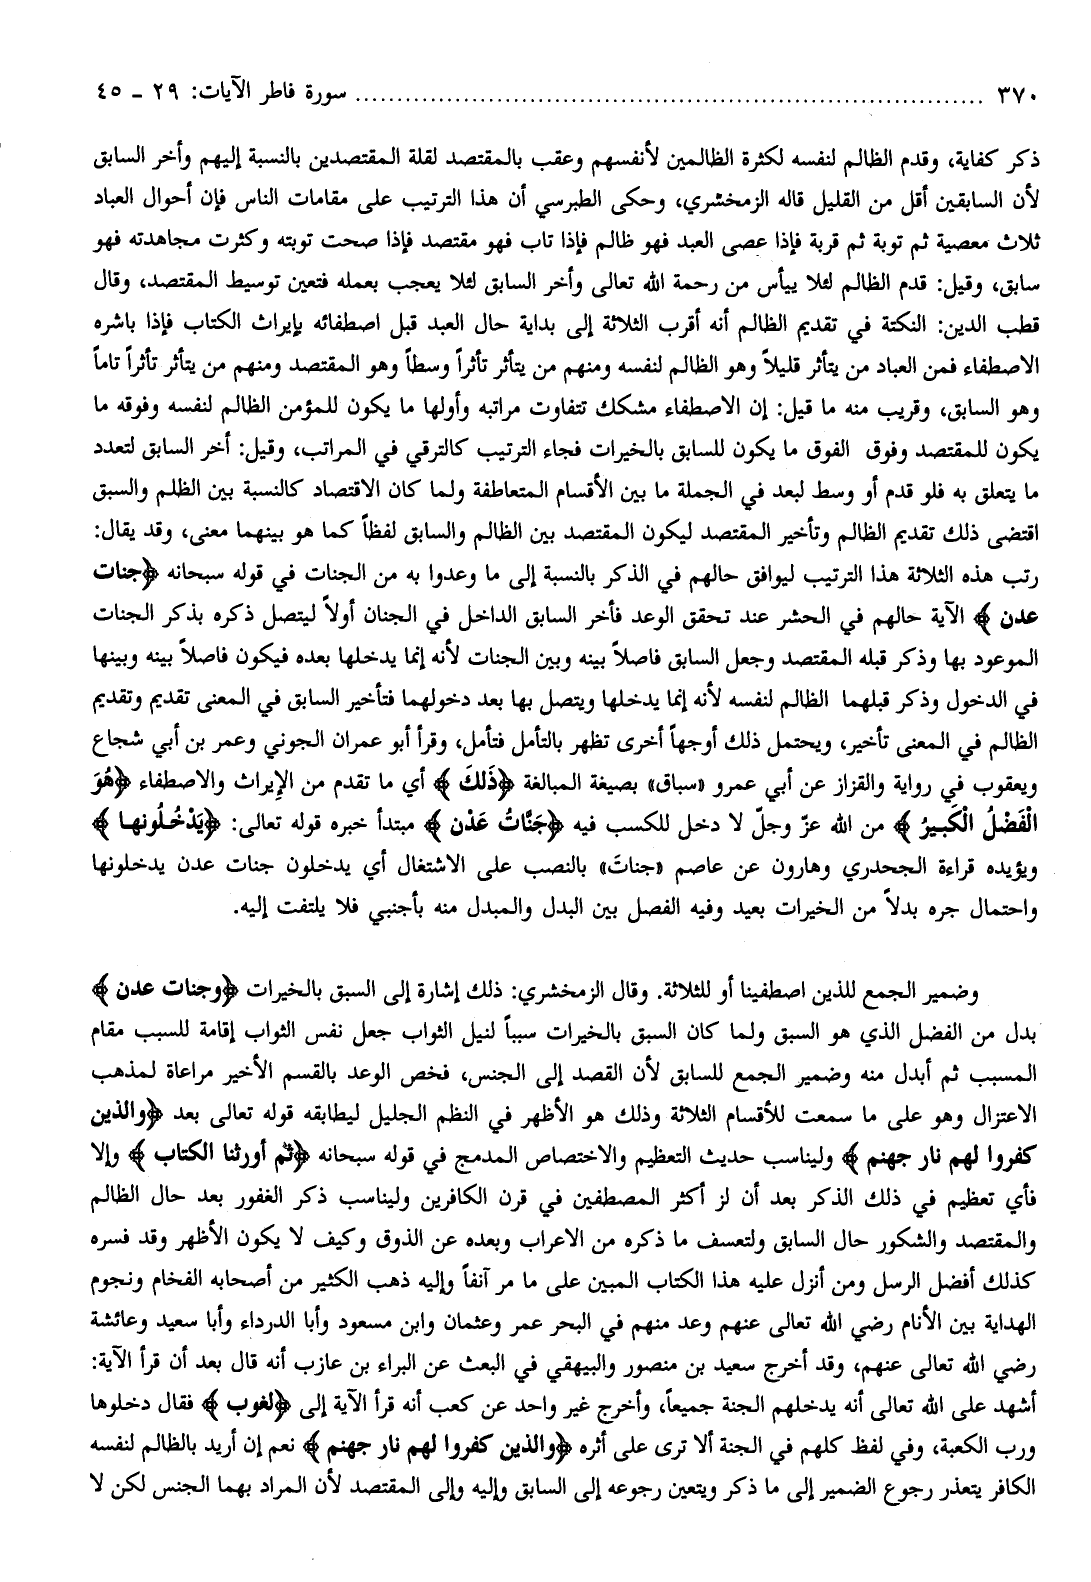 ٣٧٠ ........................................ سورة فاطر الآيات: ٢٩ ـ ٤٥
ذكر كفاية، وقدم الظالم لنفسه لكثرة الظالمين لأنفسهم وعقب بالمقتصد لقلة المقتصدين بالنسبة إليهم وأخر السابق
لأن السابقين أقل من القليل قاله الزمخشري، وحكى الطبرسي أن هذا الترتيب على مقامات الناس فإن أحوال العباد
ثلاث معصية ثم توبة ثم قربة فإذا عصى العبد فهو ظالم فإذا تاب فهو مقتصد فإذا صحت توبته وكثرت مجاهدته فهو
سابق، وقيل: قدم الظالم لئلا ييأس من رحمة الله تعالى وأخر السابق لئلا يعجب بعمله فتعين توسيط المقتصد، وقال
قطب الدين: النكتة في تقديم الظالم أنه أقرب الثلاثة إلى بداية حال العبد قبل اصطفائه بإيراث الكتاب فإذا باشره
الاصطفاء فمن العباد من يتأثر قليلاً وهو الظالم لنفسه ومنهم من يتأثر تأثراً وسطاً وهو المقتصد ومنهم من يتأثر تأثراً تاماً
وهو السابق، وقريب منه ما قيل: إن الاصطفاء مشكك تتفاوت مراتبه وأولها ما يكون للمؤمن الظالم لنفسه وفوقه ما
يكون للمقتصد وفوق الفوق ما يكون للسابق بالخيرات فجاء الترتيب كالترقي في المراتب، وقيل: أخر السابق لتعدد
ما يتعلق به فلو قدم أو وسط لبعد في الجملة ما بين الأقسام المتعاطفة ولما كان الاقتصاد كالنسبة بين الظلم والسبق
اقتضى ذلك تقديم الظالم وتأخير المقتصد ليكون المقتصد بين الظالم والسابق لفظاً كما هو بينهما معنى، وقد يقال:
رتب هذه الثلاثة هذا الترتيب ليوافق حالهم في الذكر بالنسبة إلى ما وعدوا به من الجنات في قوله سبحانه ﴿جنات
عدن﴾ الآية حالهم في الحشر عند تحقق الوعد فأخر السابق الداخل في الجنان أولاً ليتصل ذكره بذكر الجنات
الموعود بها وذكر قبله المقتصد وجعل السابق فاصلاً بينه وبين الجنات لأنه إنما يدخلها بعده فيكون فاصلاً بينه وبينها
في الدخول وذكر قبلهما الظالم لنفسه لأنه إنما يدخلها ويتصل بها بعد دخولهما فتأخير السابق في المعنى تقديم وتقديم
الظالم في المعنى تأخير، ويحتمل ذلك أوجهاً أخرى تظهر بالتأمل فتأمل، وقرأ أبو عمران الجوني وعمر بن أبي شجاع
ويعقوب في رواية والقزاز عن أبي عمرو «سباق» بصيغة المبالغة ﴿ذَلكَ﴾ أي ما تقدم من الإيراث والاصطفاء ﴿هُوَ
الْفَضْلُ الْكَبيرُ﴾ من الله عزّ وجلّ لا دخل للكسب فيه ﴿جَنَّاتُ عَدْن﴾ مبتدأ خبره قوله تعالى: ﴿يَدْخُلُونها﴾
ويؤيده قراءة الجحدري وهارون عن عاصم «جناتَ» بالنصب على الاشتغال أي يدخلون جنات عدن يدخلونها
واحتمال جره بدلاً من الخيرات بعيد وفيه الفصل بين البدل والمبدل منه بأجنبي فلا يلتفت إليه.
وضمير الجمع للذين اصطفينا أو للثلاثة. وقال الزمخشري: ذلك إشارة إلى السبق بالخيرات ﴿وجنات عدن﴾
بدل من الفضل الذي هو السبق ولما كان السبق بالخيرات سبباً لنيل الثواب جعل نفس الثواب إقامة للسبب مقام
المسبب ثم أبدل منه وضمير الجمع للسابق لأن القصد إلى الجنس، فخص الوعد بالقسم الأخير مراعاة لمذهب
الاعتزال وهو على ما سمعت للأقسام الثلاثة وذلك هو الأظهر في النظم الجليل ليطابقه قوله تعالى بعد ﴿والذين
كفروا لهم نار جهنم﴾ وليناسب حديث التعظيم والاختصاص المدمج في قوله سبحانه ﴿ثم أورثنا الكتاب﴾ وإلا
فأي تعظيم في ذلك الذكر بعد أن لز أكثر المصطفين في قرن الكافرين وليناسب ذكر الغفور بعد حال الظالم
والمقتصد والشكور حال السابق ولتعسف ما ذكره من الاعراب وبعده عن الذوق وكيف لا يكون الأظهر وقد فسره
كذلك أفضل الرسل ومن أنزل عليه هذا الكتاب المبين على ما مر آنفاً وإليه ذهب الكثير من أصحابه الفخام ونجوم
الهداية بين الأنام رضي الله تعالى عنهم وعد منهم في البحر عمر وعثمان وابن مسعود وأبا الدرداء وأبا سعيد وعائشة
رضي الله تعالى عنهم، وقد أخرج سعيد بن منصور والبيهقي في البعث عن البراء بن عازب أنه قال بعد أن قرأ الآية:
أشهد على الله تعالى أنه يدخلهم الجنة جميعاً، وأخرج غير واحد عن كعب أنه قرأ الآية إلى ﴿لغوب﴾ فقال دخلوها
ورب الكعبة، وفي لفظ كلهم في الجنة ألا ترى على أثره ﴿والذين كفروا لهم نار جهنم﴾ نعم إن أريد بالظالم لنفسه
الكافر يتعذر رجوع الضمير إلى ما ذكر ويتعين رجوعه إلى السابق وإليه وإلى المقتصد لأن المراد بهما الجنس لكن لا